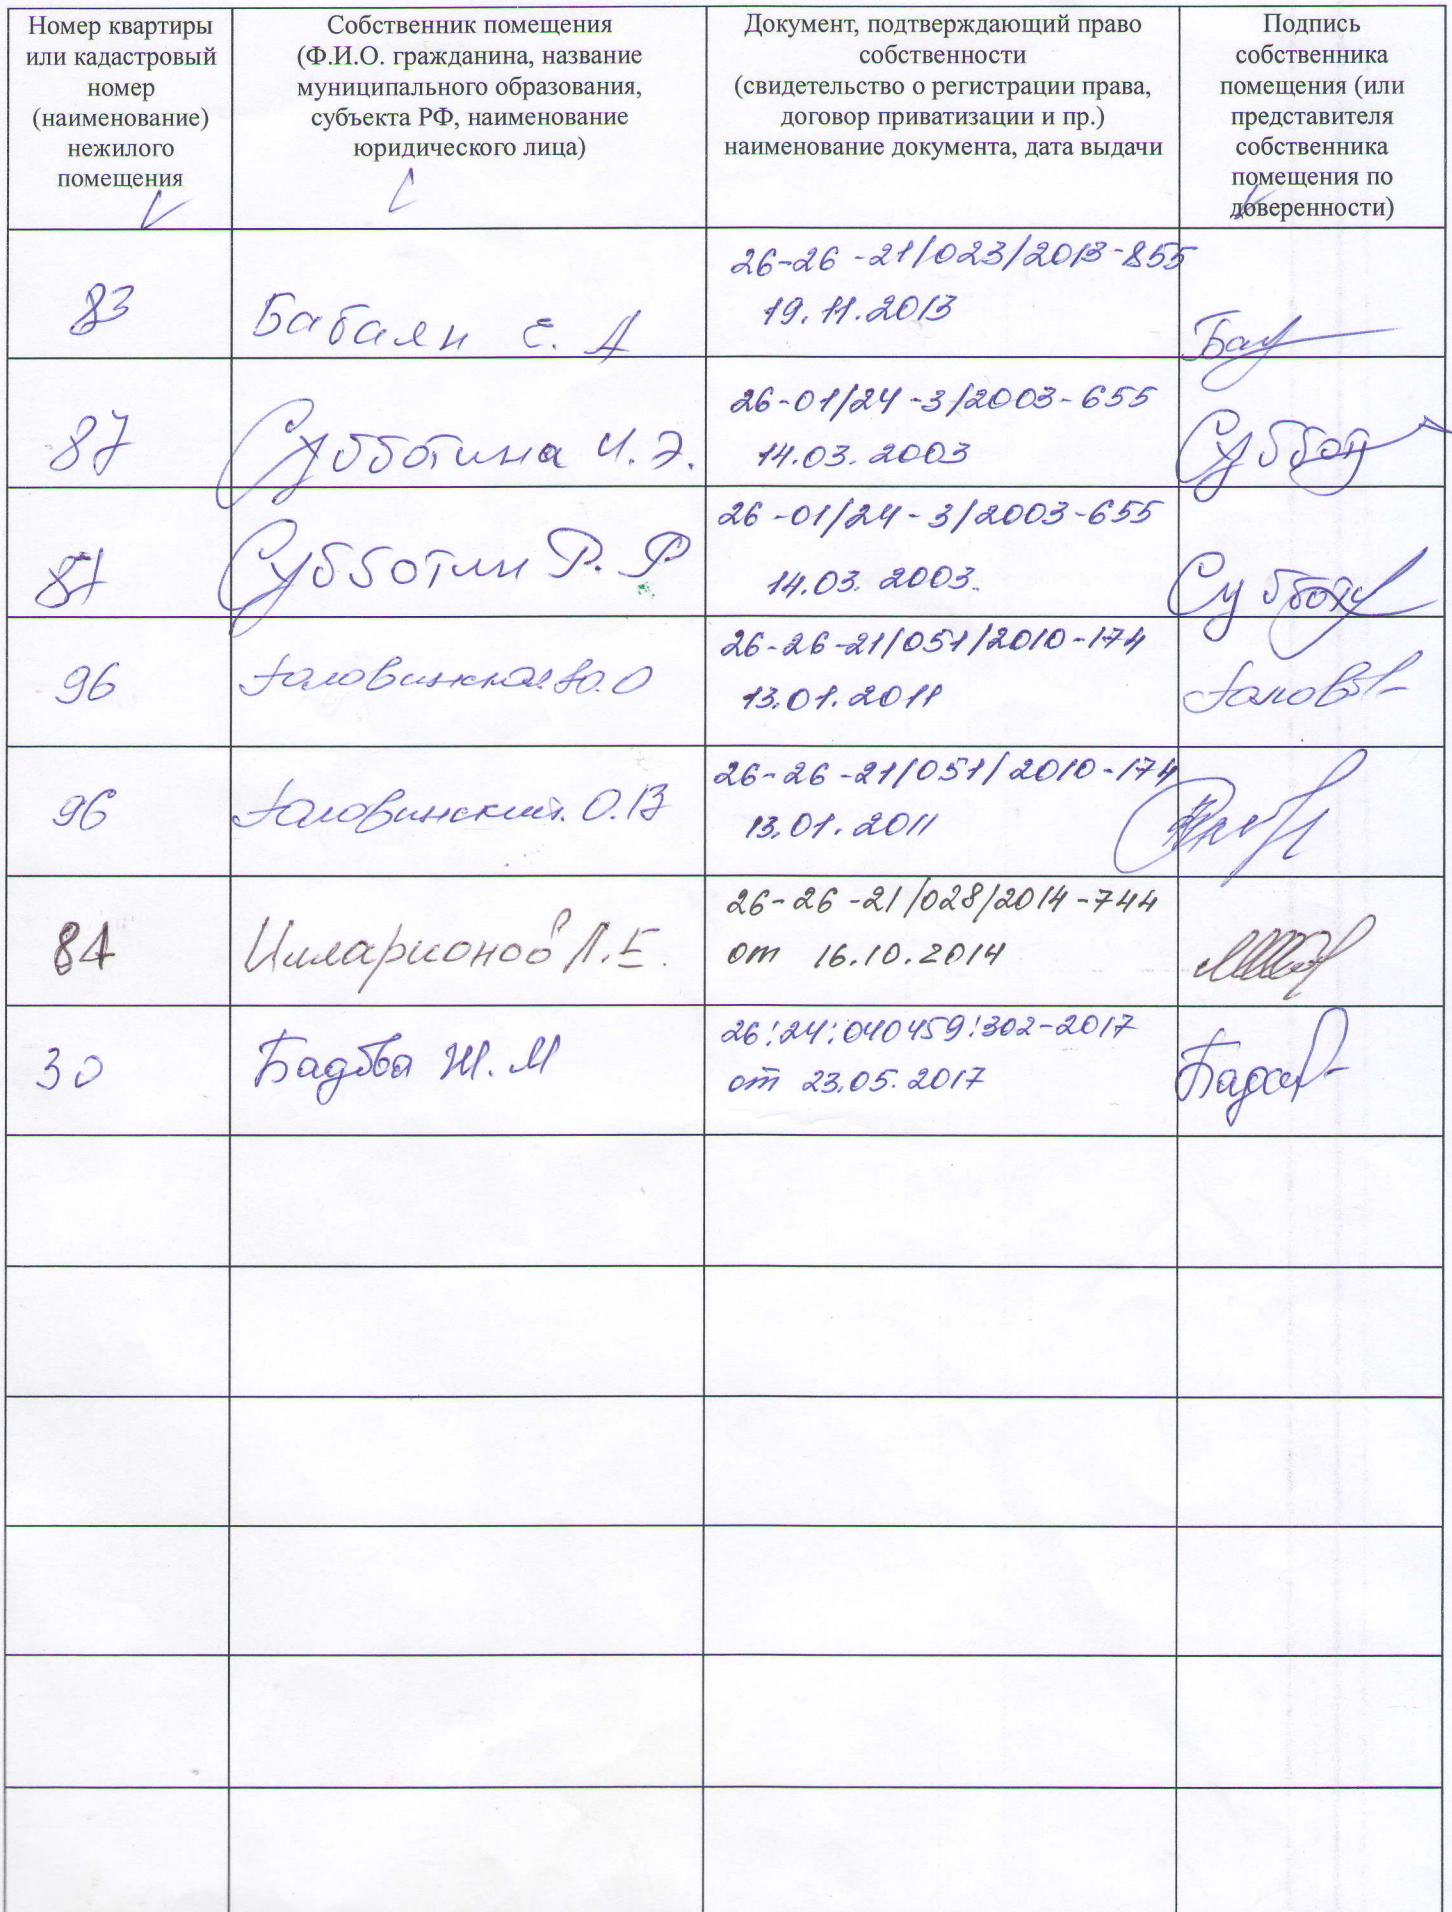 Номер квартиры
или кадастровый
номер
(наименование)
нежилого
помещения
Собственник помещения
(Ф.И.О. гражданина, название
муниципального образования,
субъекта РФ, наименование
юридического лица)
Документ, подтверждающий право
собственности
(свидетельство о регистрации права,
договор приватизации и пр.)
наименование документа, дата выдачи
Подпись
собственника
помещения (или
представителя
собственника
помещения по
доверенности)
83
Бабаян Е. А
26-26-21/023/2013-855
19.11.2013
87
Субботина И.Э.
26-01/24-3/2003-655
14.03.2003
Суббот
87
Субботин Р. Р
26-01/24-3/2003-655
14.03.2003.
96
Головинская Ю.О
26-26-21/051/2010-174
13.01.2011
96
Головинский О.В
26-26-21/051/2010-174
13.01.2011
84
Илларионов Л.Е.
26-26-21/028/2014-744
от 16.10.2014
30
Ж.М
26:24:040459:302-2017
от 23.05.2017